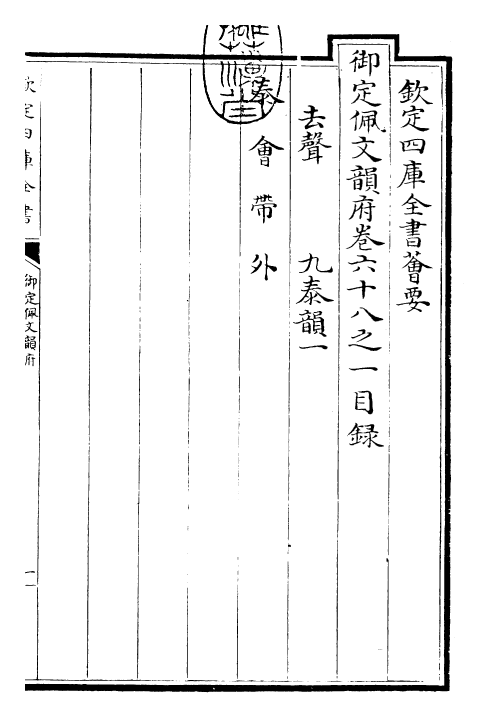 欽定四庫全書薈要
御定佩文韻府卷六十八之一目録
去聲 九泰韻一
泰會帶外
欽定四庫全書
御定佩文韻府
一